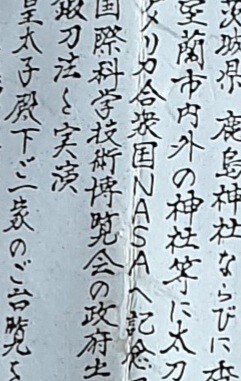 茨城県 鹿島神社ならびに香
室蘭市内外の神社等に太刀
メリカ合衆国NASAへ記念
国際科学技術博覧会の政府出
鍛刀法を実演
皇太子殿下ご一家のご台覧を